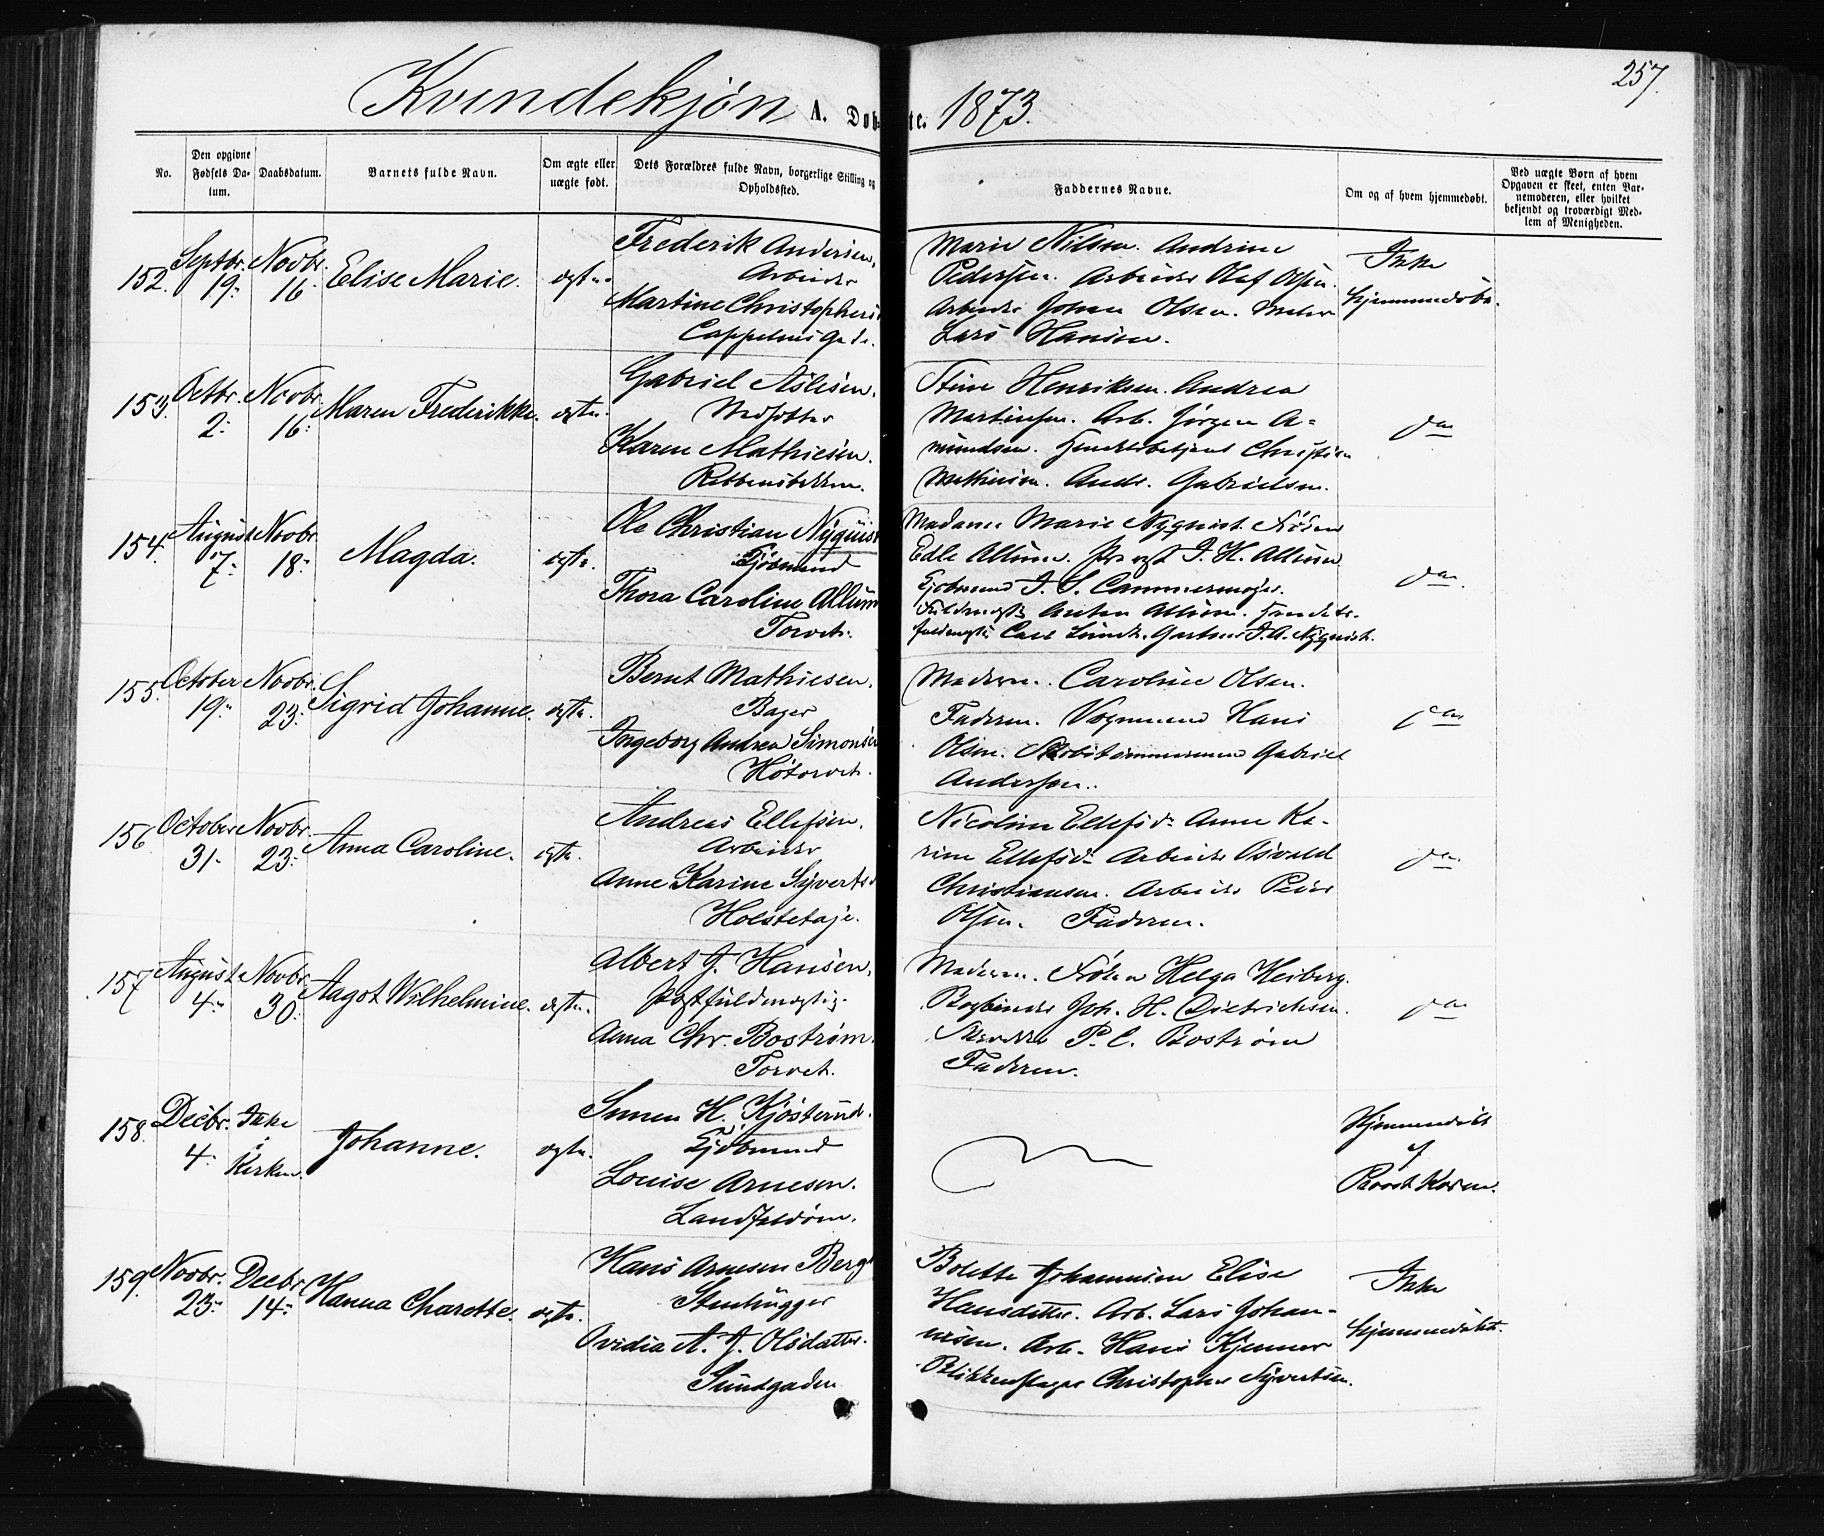 257.
Kvindekjøn A. Døbte. 1873.
No.
Den opgivne Fødsels Da-
tum.
Daabsdatum.
Barnets fulde Navn.
Om ægte eller
uægte født.
Dets Forældres fulde Navn, borgerlige Stilling og
Opholdssted.
Faddernes Navne.
Om og af hvem hjemmedøbt.
Ved uægte Børn af hvem
Opgaven er skeet, enten Bar-
nemoderen, eller hvilket
bekjendt og troværdigt Med-
lem af Menigheden.
152. Septbr. 19. Novbr. 16. Elise Marie. ægte.
Frederik Andersen,
Arbeider
Martine Christophers
Cappelens Gade.
Marie Nilsen. Andrine
Pedersen. Arbeider Olaf Olsen.
Arbeider Johan Olsen. Maler
Lars Hansen.
Ikke
hjemmedøbt.
153. Octbr. 2. Novbr. 16. Maren Frederikke. ægte.
Gabriel Aslesen,
Karen Mathiesen.
Stine Henriksen. Andrea
Martinsen. Arb. Jørgen A-
mundsen. Christian
Mathiesen. Andr. Gabrielsen.
do
154. August 7. Novbr. 18. Magda. ægte.
Ole Christian Nyquist
Kjøbmand
Thora Caroline Allum
Torvet.
Madame Marie Nyquist. Frøken
Edle Allum. J. H. Allum
Kjøbmand J. S. Cammermeyer.
Fuldmægtig Anton Allum. Handels-
fuldmægtig Carl Lund. Gartner J. A. Nyquist.
do.
155. October 19. Novbr. 23. Sigrid Johanne. ægte.
Bernt Mathiesen,
Bager
Ingeborg Andrea Simonsen
Høtorvet.
Moderen. Caroline Olsen.
Faderen. Vognmand Hans
Olsen. Skibstømmermand Gabriel
Anderssen.
do
156 October 31. Novbr. 23. Anna Caroline. ægte.
Andreas Ellefsen,
Arbeider
Anne Karine Syvertsd
Nicoline Ellefsd. Anne Ka-
rine Ellefsd. Arbeider Osvald
Christiansen. Arbeider Peder
Olsen. Faderen.
do
157 August 4. Novbr. 30. Aagot Wilhelmine. ægte.
Albert J. Hansen,
Postfuldmægtig.
Anna Chr. Boström,
Torvet.
Moderen. Frøken Helga Heiberg.
Bogbinder Joh. H. Dietrichsen.
P. C. Boström
Faderen.
do
158. Decbr. 4. Ikke
i
Kirken. Johanne. ægte.
H. Kjøsterud.
Kjøbmand
Louise Arnesen.
Landfaldøen.
Hjemmedøbt
af
Provst Koren.
159. Novbr. 23. Decbr. 14. Hanna Charette. ægte.
Hans Arnesen Berg
Stenhugger
Ovidia A. J. Olsdatter.
Sundgaden
Bolette Johannesen Elise
Hansdatter. Arb. Lars Johan-
nesen. Arb. Hans Kjenner
Blikkenslager Christopher Syvertsen.
Ikke
hjemmedøbt.